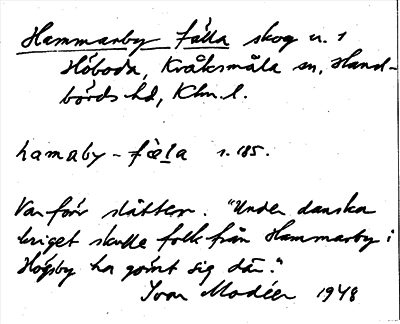 Hammarby fälla skog u. 1
Höboda, Kråksmåla sn, Hand-
börds hd, Klm. l.
hamaby-fäla s. 185.
Var förr slåtter. "Under danska
kriget skulle folk från Hammarby i
Högsby ha gömt sig där."
Ivar Modéer 1948